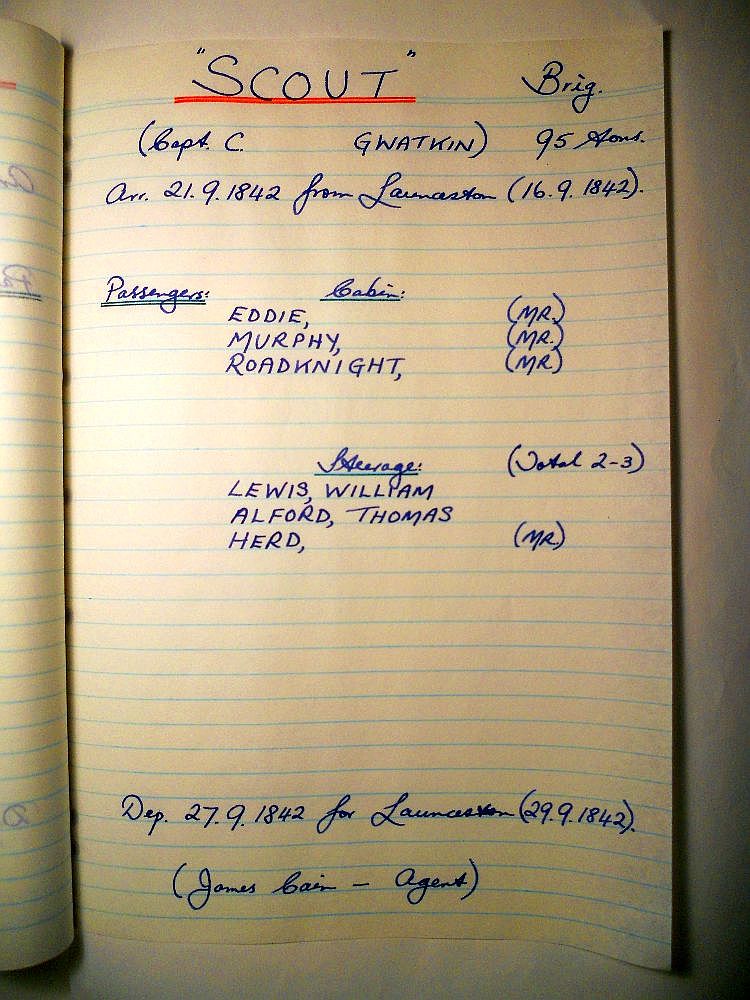 "SCOUT" Brig.
(Capt. C. GWATKIN) 95 tons.
Arr. 21.9.1842 from Launceston (16.9.1842).
Passengers: Cabin:
EDDIE, (MR.)
MURPHY, (MR.)
ROADKNIGHT, (MR)
Steerage: (Total 2-3)
LEWIS, WILLIAM
ALFORD, THOMAS
HERD, (MR.)
Dep. 27.9.1842 for Launceston (29.9.1842).
(James Cain - Agent)